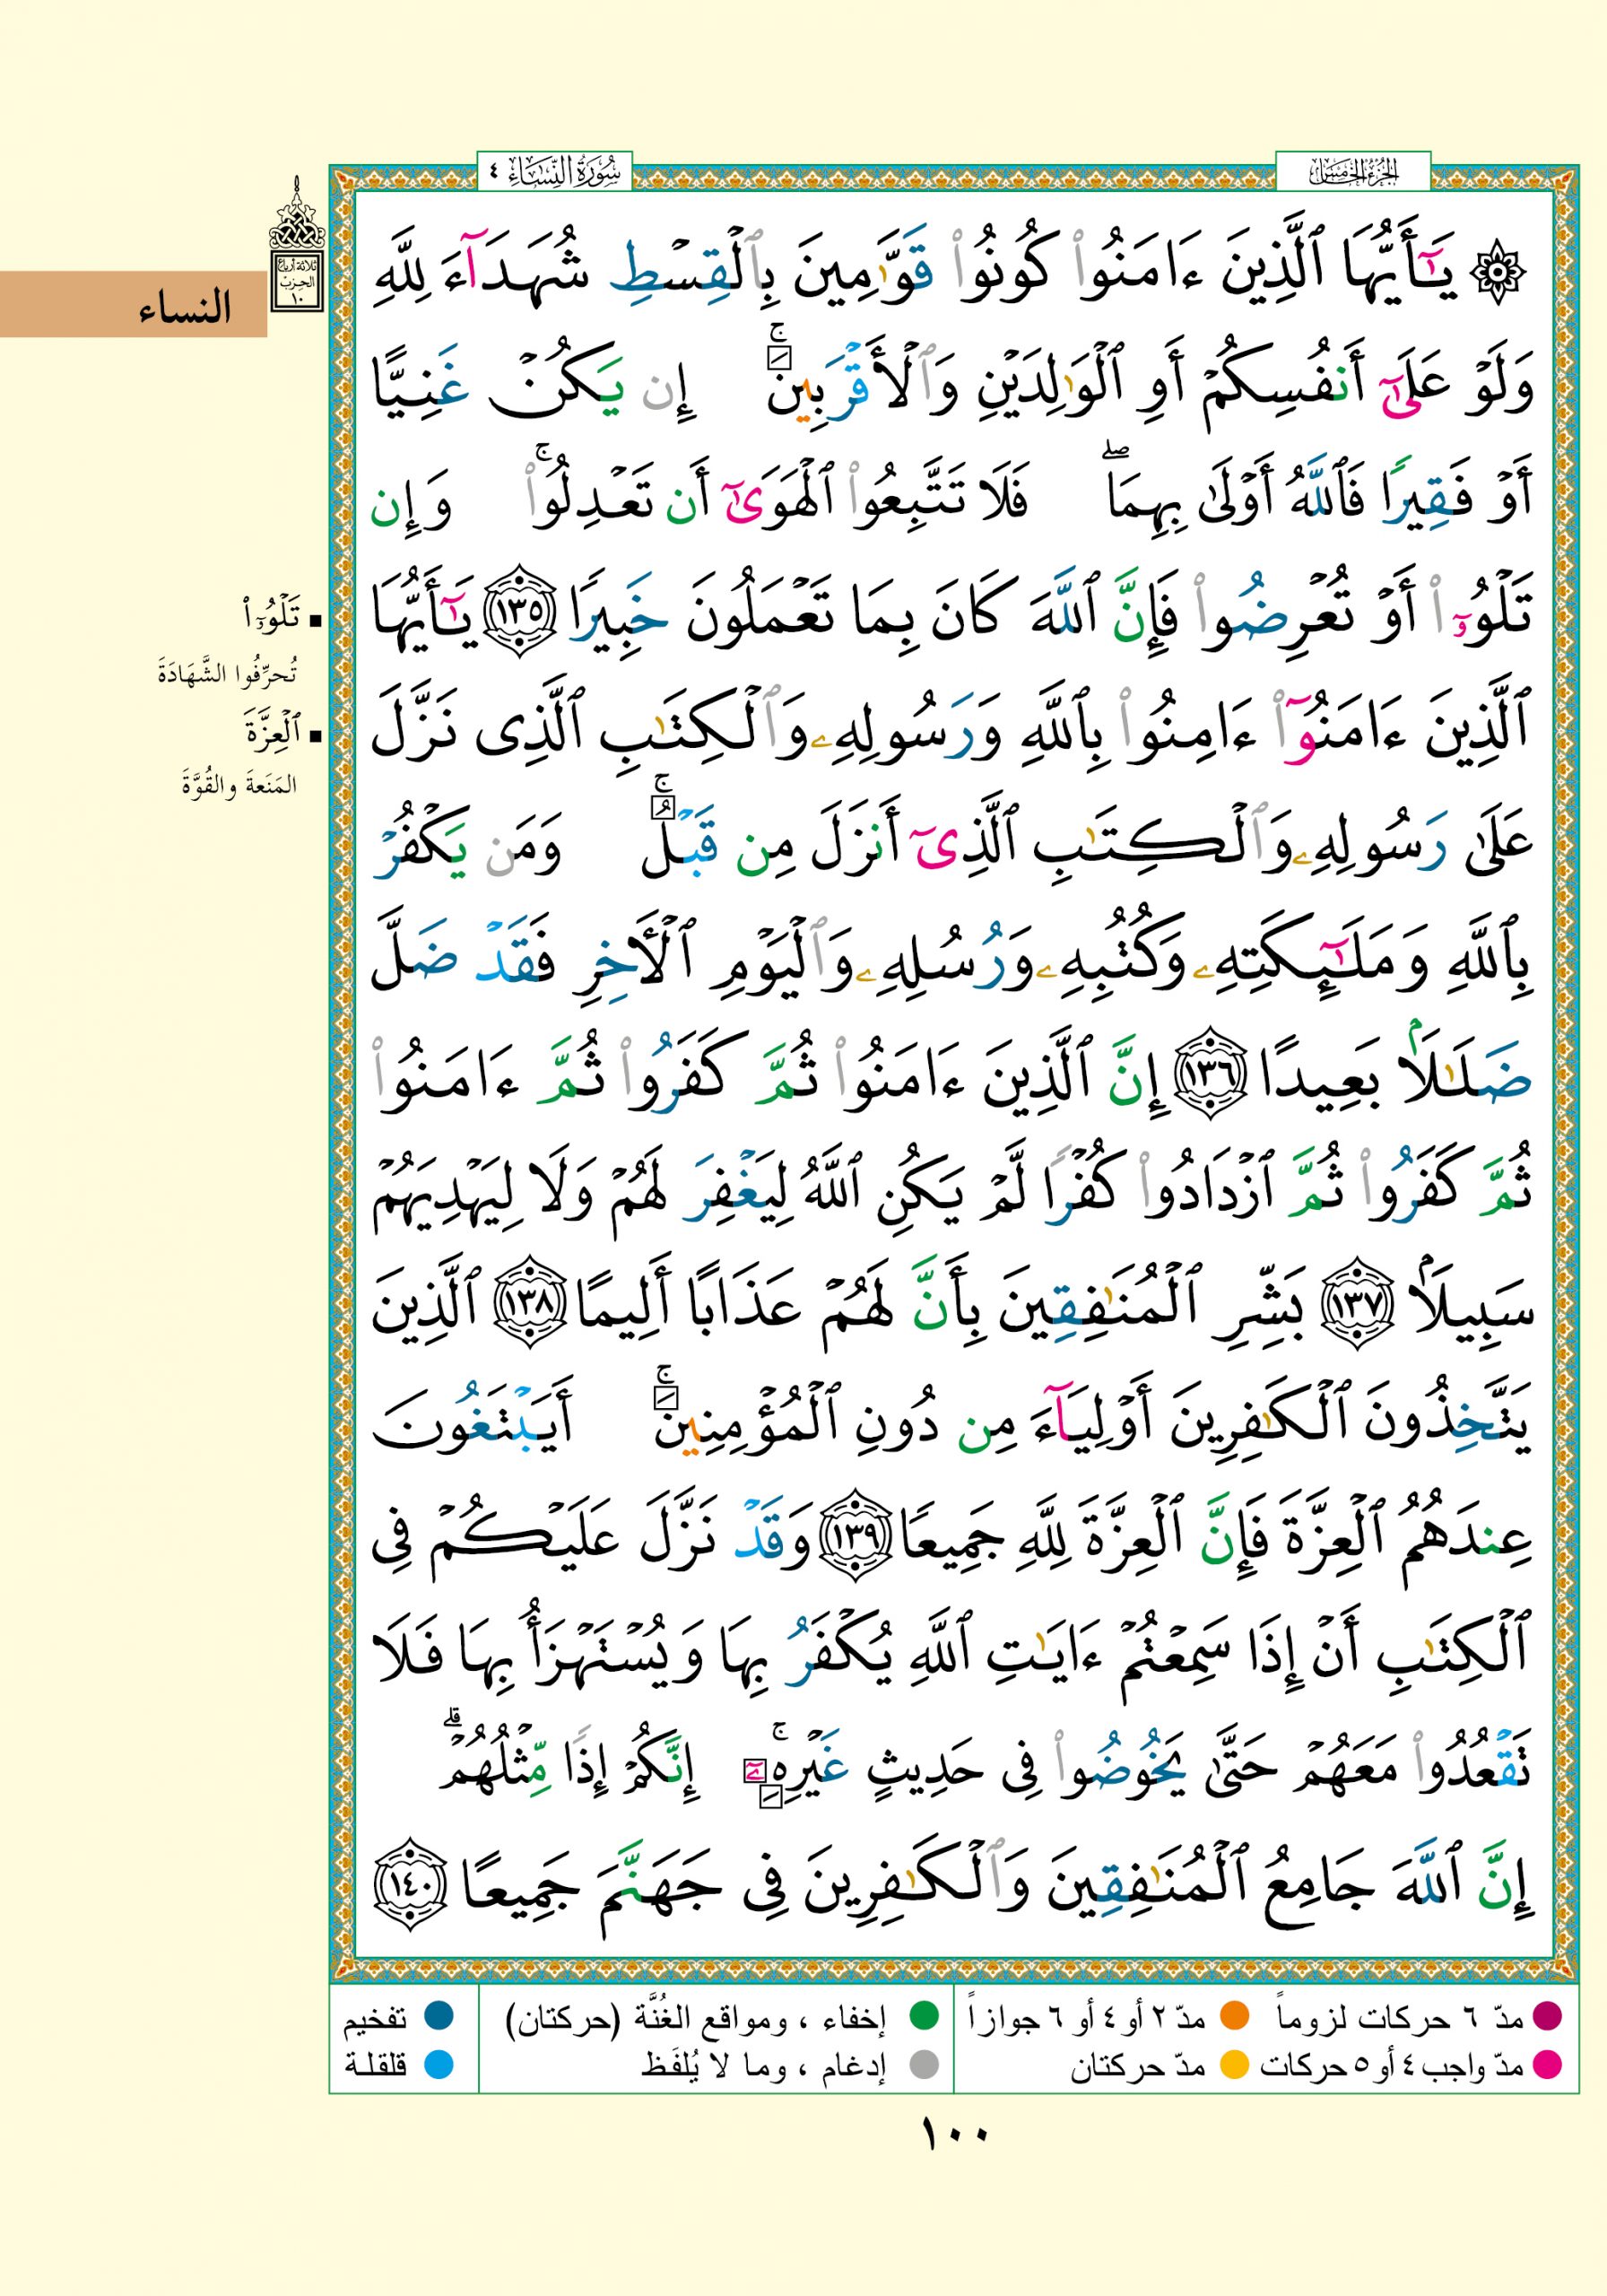 الجزء الخامس
سورة النساء ٤
ثلاثة أرباع
الحزب
١٠
النساء
۞ يَـٰٓأَيُّهَا ٱلَّذِينَ ءَامَنُوا۟ كُونُوا۟ قَوَّٰمِينَ بِٱلْقِسْطِ شُهَدَآءَ لِلَّهِ
وَلَوْ عَلَىٰٓ أَنفُسِكُمْ أَوِ ٱلْوَٰلِدَيْنِ وَٱلْأَقْرَبِينَ ۚ إِن يَكُنْ غَنِيًّا
أَوْ فَقِيرًا فَٱللَّهُ أَوْلَىٰ بِهِمَا ۖ فَلَا تَتَّبِعُوا۟ ٱلْهَوَىٰٓ أَن تَعْدِلُوا۟ ۚ وَإِن
تَلْوُۥٓا۟ أَوْ تُعْرِضُوا۟ فَإِنَّ ٱللَّهَ كَانَ بِمَا تَعْمَلُونَ خَبِيرًا ١٣٥ يَـٰٓأَيُّهَا
ٱلَّذِينَ ءَامَنُوٓا۟ ءَامِنُوا۟ بِٱللَّهِ وَرَسُولِهِۦ وَٱلْكِتَـٰبِ ٱلَّذِى نَزَّلَ
عَلَىٰ رَسُولِهِۦ وَٱلْكِتَـٰبِ ٱلَّذِىٓ أَنزَلَ مِن قَبْلُ ۚ وَمَن يَكْفُرْ
بِٱللَّهِ وَمَلَـٰٓئِكَتِهِۦ وَكُتُبِهِۦ وَرُسُلِهِۦ وَٱلْيَوْمِ ٱلْـَٔاخِرِ فَقَدْ ضَلَّ
ضَلَـٰلًۢا بَعِيدًا ١٣٦ إِنَّ ٱلَّذِينَ ءَامَنُوا۟ ثُمَّ كَفَرُوا۟ ثُمَّ ءَامَنُوا۟
ثُمَّ كَفَرُوا۟ ثُمَّ ٱزْدَادُوا۟ كُفْرًا لَّمْ يَكُنِ ٱللَّهُ لِيَغْفِرَ لَهُمْ وَلَا لِيَهْدِيَهُمْ
سَبِيلًۢا ١٣٧ بَشِّرِ ٱلْمُنَـٰفِقِينَ بِأَنَّ لَهُمْ عَذَابًا أَلِيمًا ١٣٨ ٱلَّذِينَ
يَتَّخِذُونَ ٱلْكَـٰفِرِينَ أَوْلِيَآءَ مِن دُونِ ٱلْمُؤْمِنِينَ ۚ أَيَبْتَغُونَ
عِندَهُمُ ٱلْعِزَّةَ فَإِنَّ ٱلْعِزَّةَ لِلَّهِ جَمِيعًا ١٣٩ وَقَدْ نَزَّلَ عَلَيْكُمْ فِى
ٱلْكِتَـٰبِ أَنْ إِذَا سَمِعْتُمْ ءَايَـٰتِ ٱللَّهِ يُكْفَرُ بِهَا وَيُسْتَهْزَأُ بِهَا فَلَا
تَقْعُدُوا۟ مَعَهُمْ حَتَّىٰ يَخُوضُوا۟ فِى حَدِيثٍ غَيْرِهِۦٓ ۚ إِنَّكُمْ إِذًا مِّثْلُهُمْ ۗ
إِنَّ ٱللَّهَ جَامِعُ ٱلْمُنَـٰفِقِينَ وَٱلْكَـٰفِرِينَ فِى جَهَنَّمَ جَمِيعًا ١٤٠
▪ تَلْوُۥٓا۟
تُحرِّفُوا الشَّهَادَةَ
▪ ٱلْعِزَّةَ
المَنَعةَ والقُوَّةَ
● مدّ ٦ حركات لزوماً ● مدّ ٢ أو ٤ أو ٦ جوازاً ● إخفاء ، ومواقع الغُنَّة (حركتان) ● تفخيم
● مدّ واجب ٤ أو ٥ حركات ● مدّ حركتان ● إدغام ، وما لا يُلفَظ ● قلقلة
١٠٠